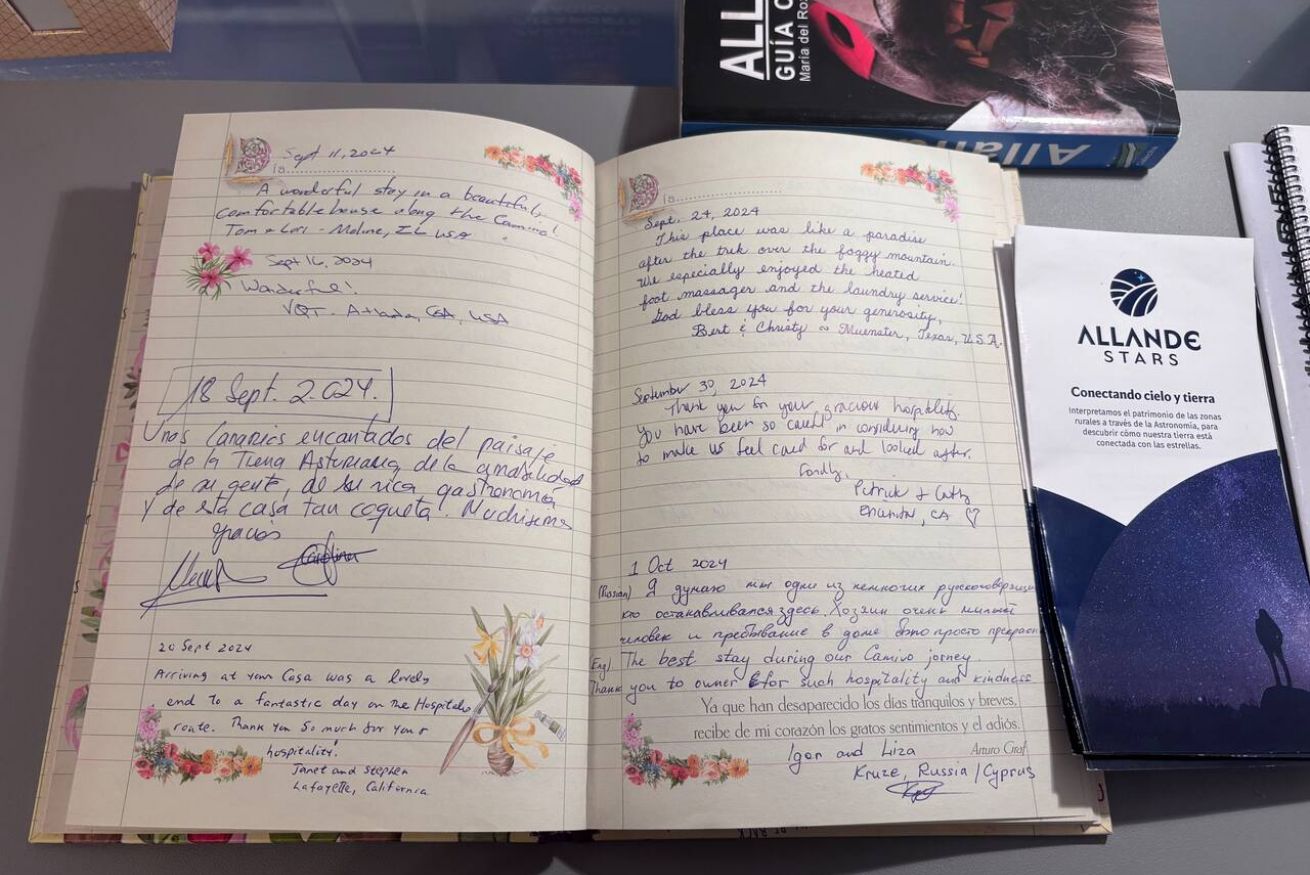 Sept 11, 2024
ía
A wonderful stay in a beautiful,
comfortable house along the Camino!
Tom & Lori - Moline, IL USA
Sept 16, 2024
Wonderful!
Atlanta, GA, USA
18 Sept. 2.024.
Unos Canarios encantados del paisaje
de la Tierra Asturiana, de la amabilidad
de su gente, de su rica gastronomía
y de esta casa tan coqueta!. Muchísimas
gracias
Carolina
20 Sept 2024
Arriving at your Casa was a lovely
end to a fantastic day on the Hospitales
route. Thank you so much for your
hospitality!
Janet and Stephen
Lafayette, California
ía
Sept. 24, 2024
This place was like a paradise
after the trek over the foggy mountain.
We especially enjoyed the heated
foot massager and the laundry service!
God bless you for your generosity,
Bert & Christy ~ Muenster, Texas, U.S.A.
September 30, 2024
Thank you for your gracious hospitality.
You have been so careful in considering how
to make us feel cared for and looked after.
Fondly,
Patrick & Cathy
CA
1 Oct 2024
(Russian) Я думаю мы одни из немногих русскоговорящих
кто останавливался здесь. Хозяин очень милый
человек и пребывание в доме было просто прекрасн
Eng) The best stay during our Camino jorney
Thank you to owner for such hospitality and kindness
Ya que han desaparecido los días tranquilos y breves,
recibe de mi corazón los gratos sentimientos y el adiós.
Arturo Graf
Igor and Liza
Kruze, Russia / Cyprus
ALL
GUÍA
María del Ro
Allan
ALLANDE
STARS
Conectando cielo y tierra
Interpretamos el patrimonio de las zonas
rurales a través de la Astronomía, para
descubrir cómo nuestra tierra está
conectada con las estrellas.